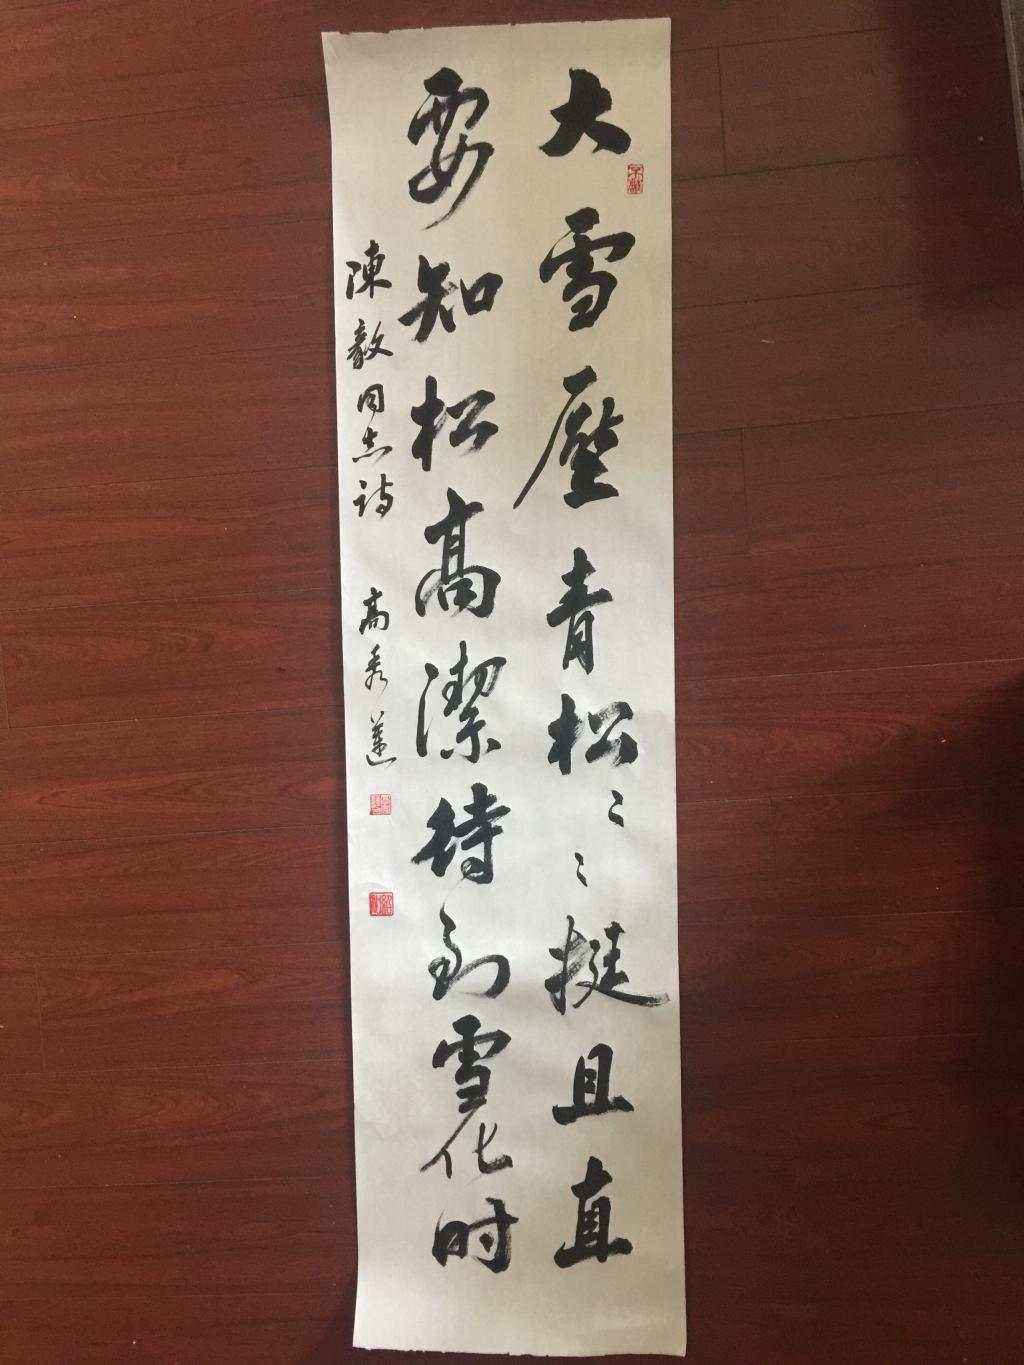 大雪壓青松〻〻挺且直
要知松高潔待到雪化时
陳毅同志诗 高秀蓮